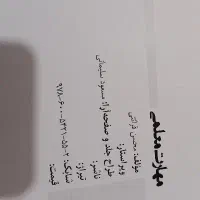 مهارت معلمی
مؤلف: محسن قرائتی
ویراستار:
طراح جلد و صفحه‌آرا: مسعود سلیمانی
ناشر:
تیراژ:
شابک: ۲-۵۵-۵۴۲۱-۶۰۰-۹۷۸
قیمت: